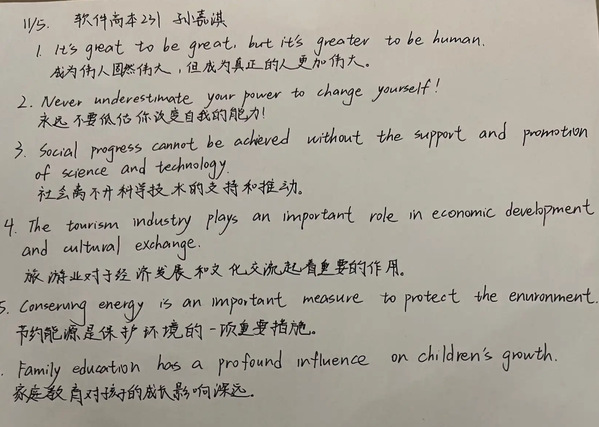 11/5. 软件高本231 孙嘉淇
1. It's great to be great, but it's greater to be human.
成为伟人固然伟大，但成为真正的人更加伟大。
2. Never underestimate your power to change yourself!
永远不要低估你改变自我的能力！
3. Social progress cannot be achieved without the support and promotion
of science and technology.
社会离不开科学技术的支持和推动。
4. The tourism industry plays an important role in economic development
and cultural exchange.
旅游业对于经济发展和文化交流起着重要的作用。
5. Conserving energy is an important measure to protect the environment.
节约能源是保护环境的一项重要措施。
. Family education has a profound influence on children's growth.
家庭教育对孩子的成长影响深远。